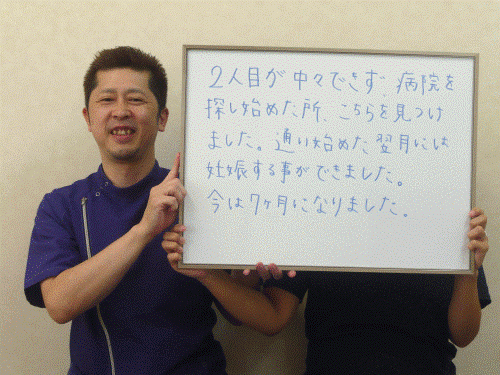 2人目が中々できず、病院を
探し始めた所、こちらを見つけ
ました。通い始めた翌月には
妊娠する事ができました。
今は7ヶ月になりました。